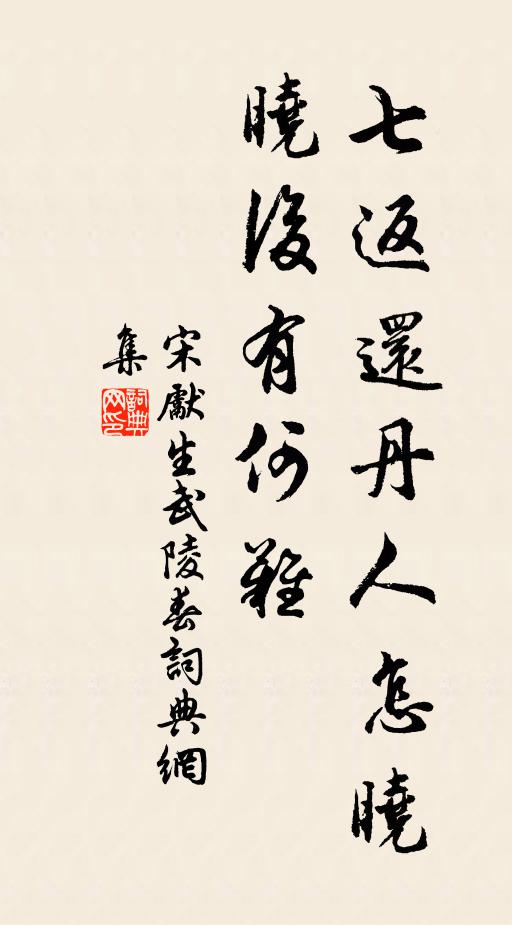 七返還丹人怎曉
曉後有何難
宋獻生武陵春詞典網
集
詞典
网印